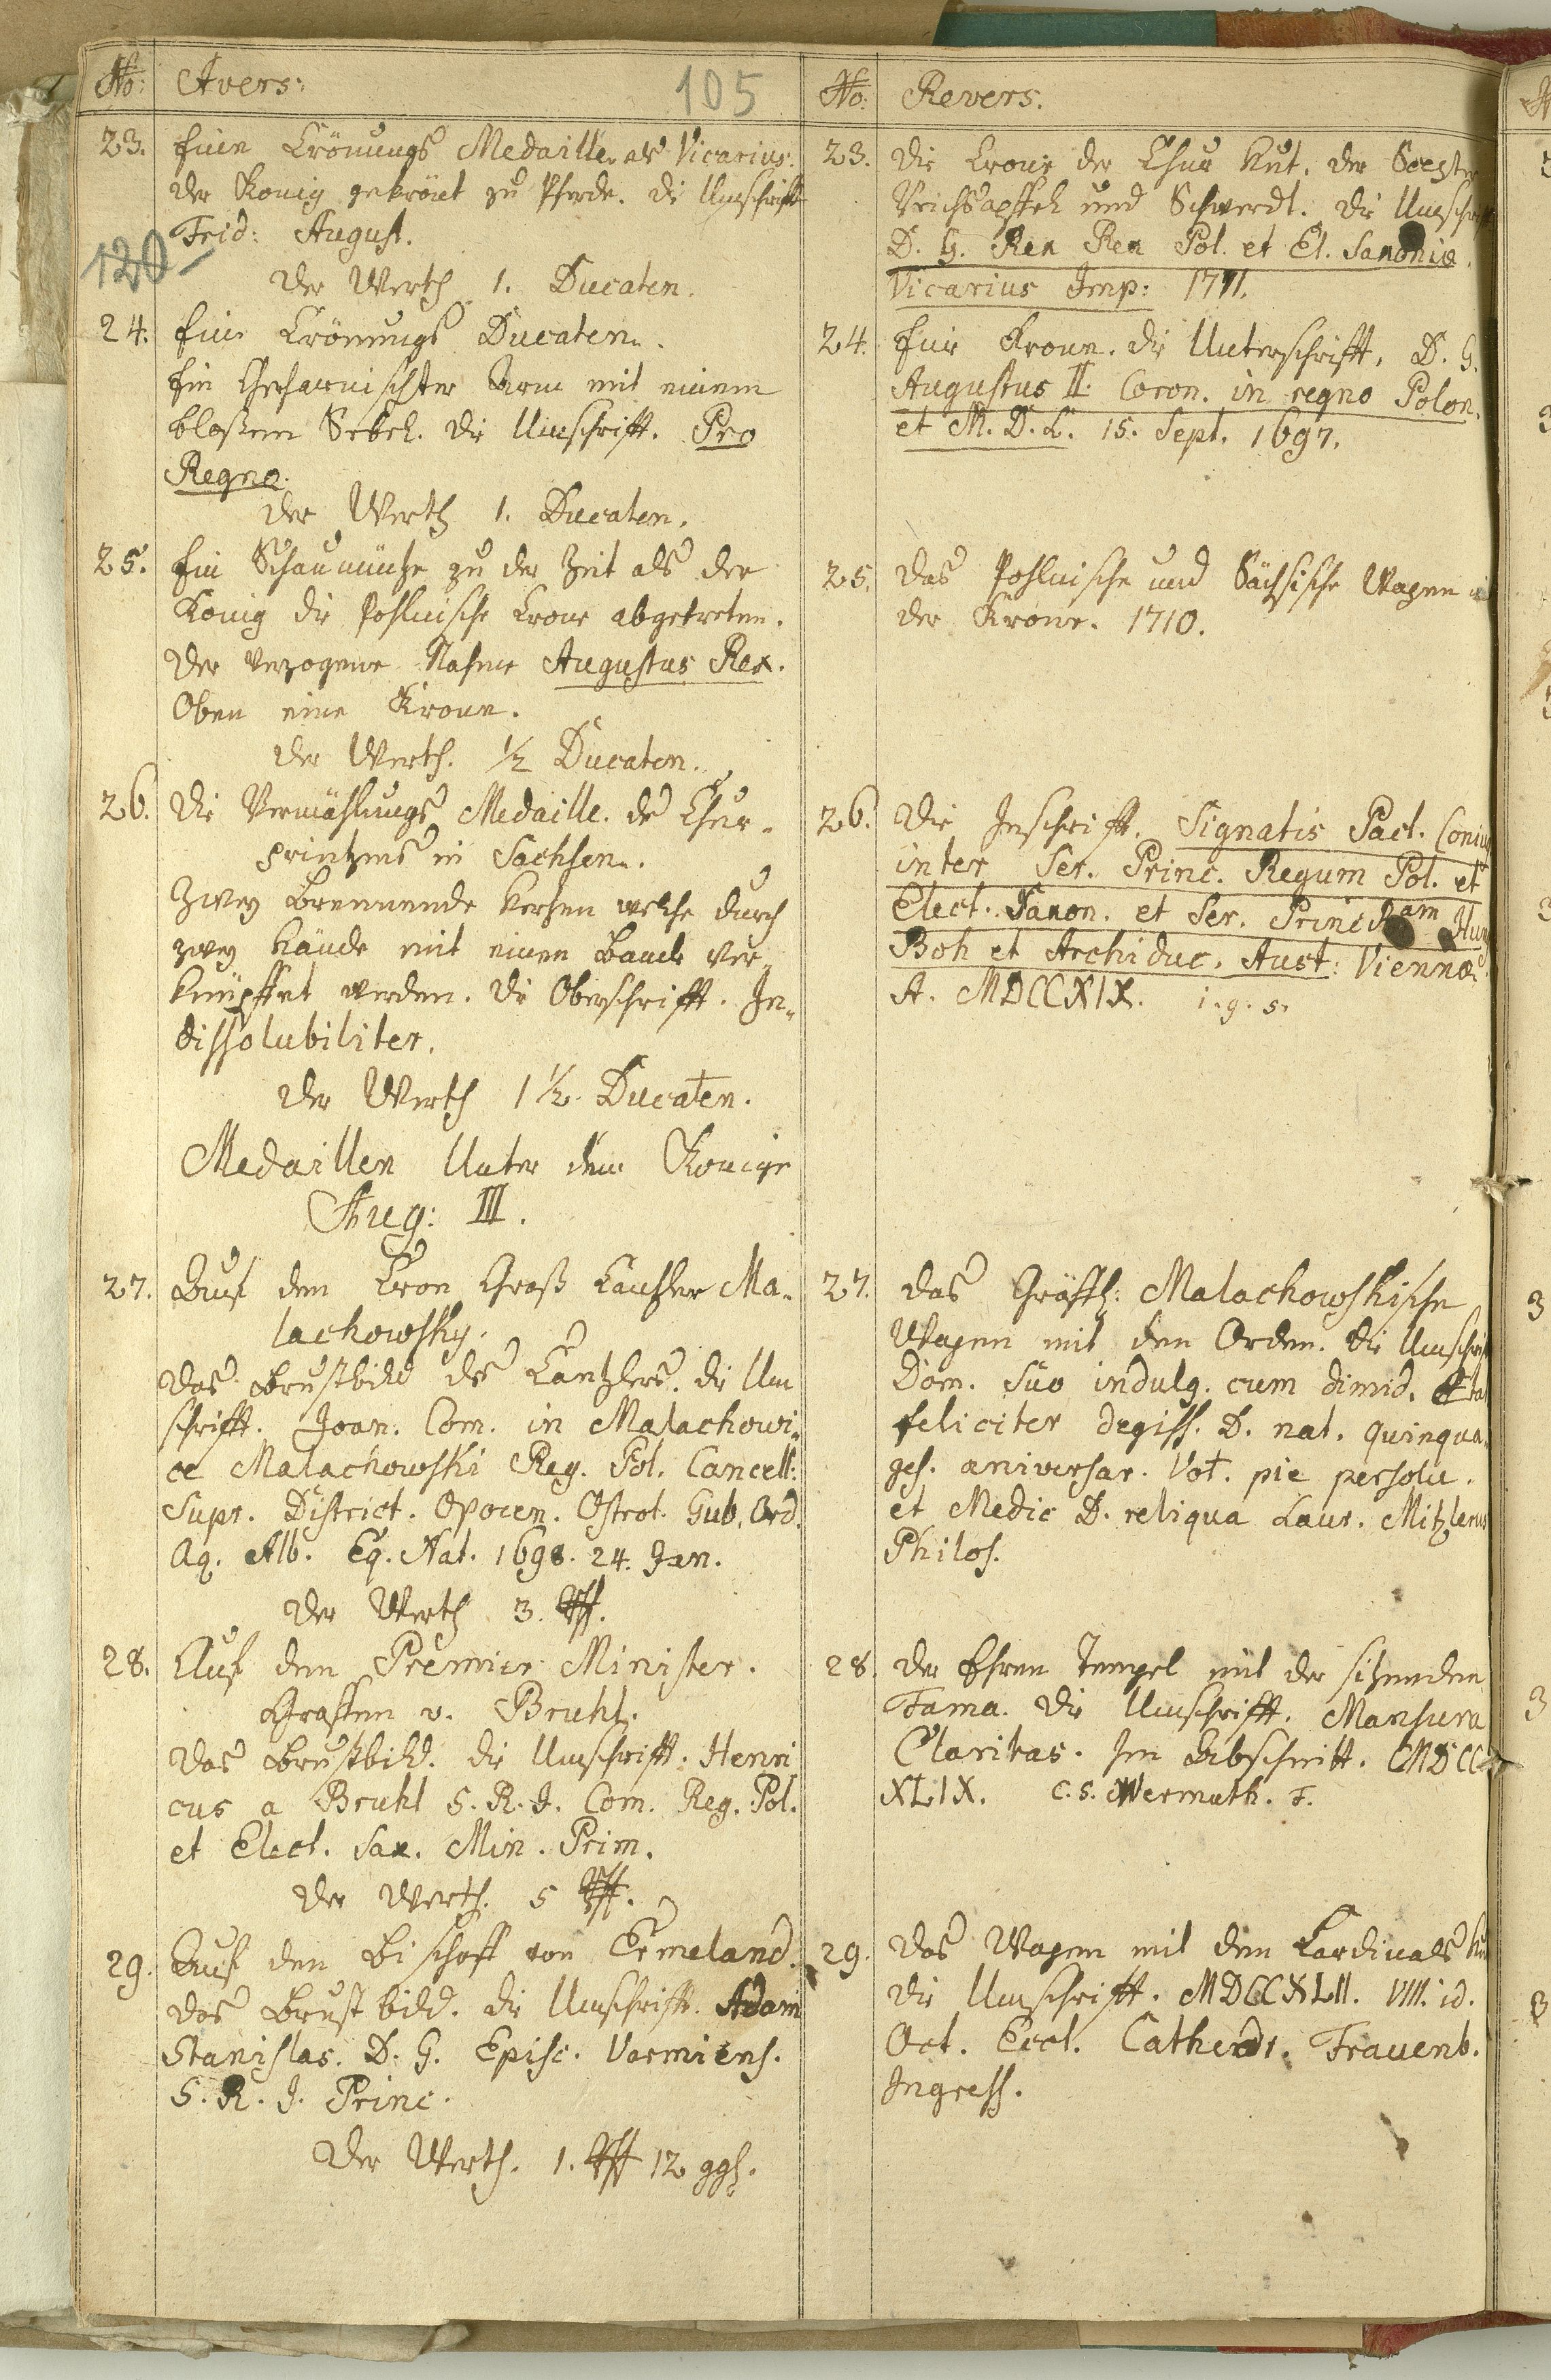 No: Avers:
105
23. Eine Crönungs Medaille, als Vicarius.
der König gekrönt zu Pferde. die Umschrifft
Frid: August.
120
der Werth 1. Ducaten.
24. Eine Crönungs Ducaten.
Ein Geharnischter Arm mit einem
bloßem Sebel. die Umschrifft. Pro
Regno.
der Werth 1. Ducaten.
25. Ein Schaumüntze zu der Zeit als der
König die Pohlnische Crone abgetreten.
der verzogene Nahme Augustus Rex.
Oben eine Krone.
der Werth. ½ Ducaten.
26. Die Vermählungs Medaille. des Chur-
printzens in Sachsen.
Zwey Brennende Kerzen welche durch
zwey Hände mit einen Bande ver-
knüpffet werden. die Oberschrifft. In-
dissolubiliter.
der Werth 1 ½ Ducaten.
Medaillen Unter dem Könige
Aug: III.
27. Auf den Cron Groß Cantzler Ma-
lachowsky.
Das Brustbild des Cantzlers. die Um
schrifft. Joan. Com. in Malachowi-
ce Malachowski Reg. Pol. Cancell:
Supr. District. Opocen. Ostrol. Gub. Ord.
Aq. Alb. Eq. Nat. 1698. 24. Jan.
der Werth 3.
28. Auf den Premier Minister.
Graffen v. Bruhl.
Das Brustbild. die Umschrifft. Henri
cus a Bruhl S. R. I. Com. Reg. Pol.
et Elect. Sax. Min. Prim.
der Werth. 5
29. Auf den Bischoff von Ermeland.
das Brustbild. die Umschrifft. Adam
Stanislas. D. G. Episc. Varmiens.
S. R. I. Princ.
Der Werth. 1. 12 ggl.
No: Revers.
23. die Crone der Chur Hut. der Scepter
Reichsapffel und Schwerdt. die Umschrifft
D. G. Rex Rex Pol. et El. Saxoniae.
Vicarius Imp: 1711.
24. Eine Krone. die Unterschrifft. D. G.
Augustus II. Coron. in regno Polon.
et M. D. L. 15. Sept. 1697.
25. das Pohlnische und Sächsische Wapen
der Krone. 1710.
26. Die Inschrifft. Signatis Pact. Coniu
inter Ser. Princ. Regum Pol. et
Elect. Saxon. et Ser. Princ am Hun
Boh et Archiduc. Aust: Viennae
A. MDCCXIX. i. g. s.
27. das Gräffl: Malachowskische
Wapen mit den Orden. die Umschrifft
Dom. suo indulg. cum dimid.
feliciter degiss. D. nat. quinqua-
ges. aniversar. Vot. pie persolu.
et Medic D. reliqua Laur. Mitzlerus
Philos.
28. der Ehren Tempel mit der sitzenden
Fama. die Umschrifft. Mansura
Claritas. Im Abschnitt. MDCC
XLIX. C. S. Wermuth. F.
29. das Wapen mit den Cardinals Hut
die Umschrifft. MDCCXLII. VIII. id.
Oct. Eccl. Cathedr. Frauenb.
Ingress.